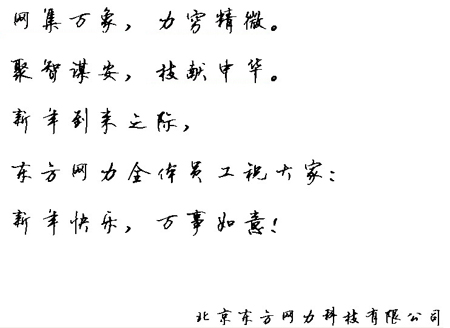 网集万象，力穷精微。
聚智谋安，技献中华。
新年到来之际，
东方网力全体员工祝大家：
新年快乐，万事如意！
北京东方网力科技有限公司